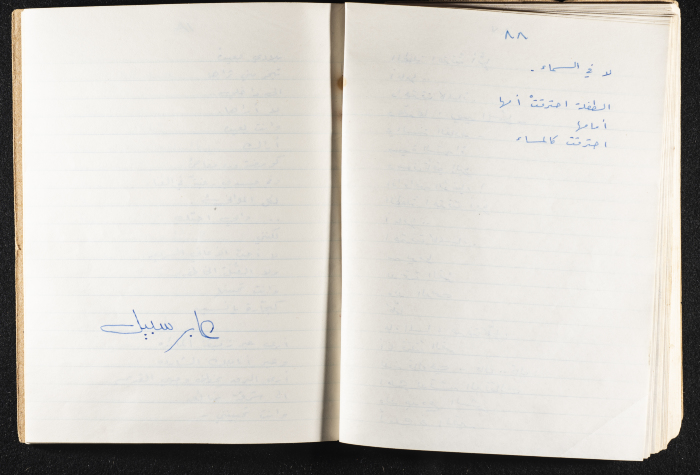 ٨٨
لا في السماء .
الطفلة احترقتْ أمها
أمامها
احترقت كالمساء
عابر سبيل